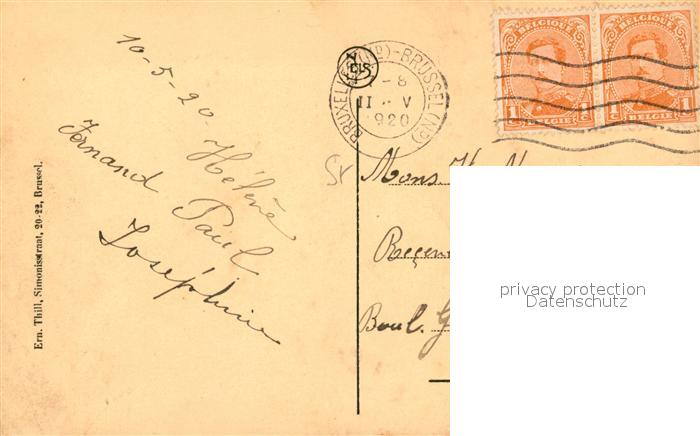 10-5-20.
Hélène
Fernand Paul
Joséphine
Ern. Thill, Simonisstraat, 20-22, Brussel.
BRUXELLES (ND)-BRUSSEL (ND)
8
11 V
1920
BELGIQUE BELGIQUE
1C 1C 1C 1C
BELGIË BELGIË
Mons.
Boul. G
privacy protection
Datenschutz